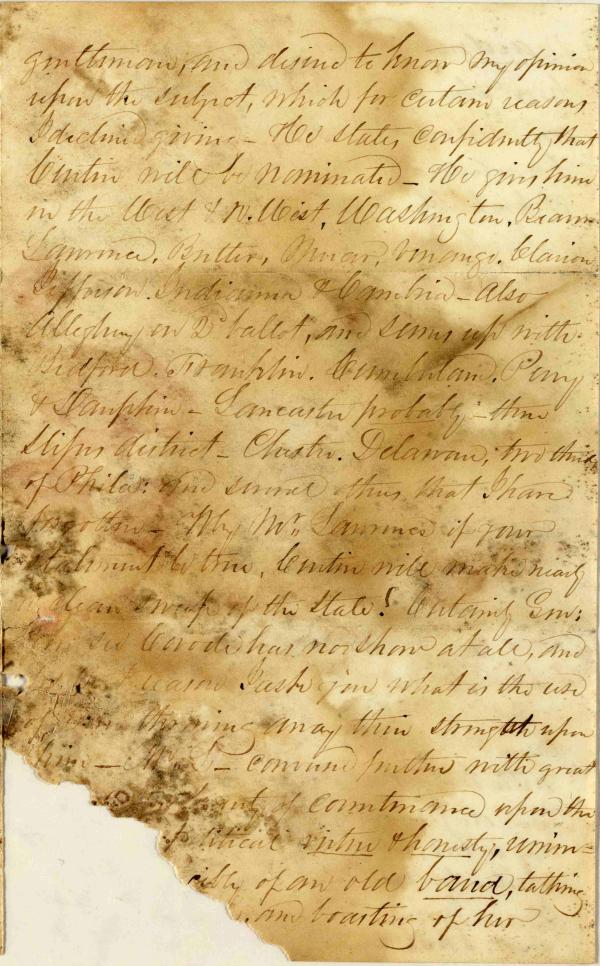 gentleman, and desired to know my opinion
upon the subject, which for certain reasons
I declined giving - He states confidently that
Curtin will be nominated - He gives him
in the West & N. West, Washington, Beaver
Lawrence, Butler, Mercer, Venango, Clarion
Jefferson. Indianna & Cambria - Also
Allegheny on 2d ballot, and sums up with
Bedford. Franklin. Cumberland. Perry
& Dauphin - Lancaster probably - then
district - Chester. Delaware, two thirds
of Phila: and several others that I have
forgotten - Why Mr. Lawrence if your
statement be true, Curtin will make nearly
a clean sweep of the State! Certainly Gen:
Covode has no show at all, and
reason I ask you what is the use
throwing away their strength upon
him - - with great
of countenance upon the
virtue & honesty,
of an old bawd, talking
and boasting of her